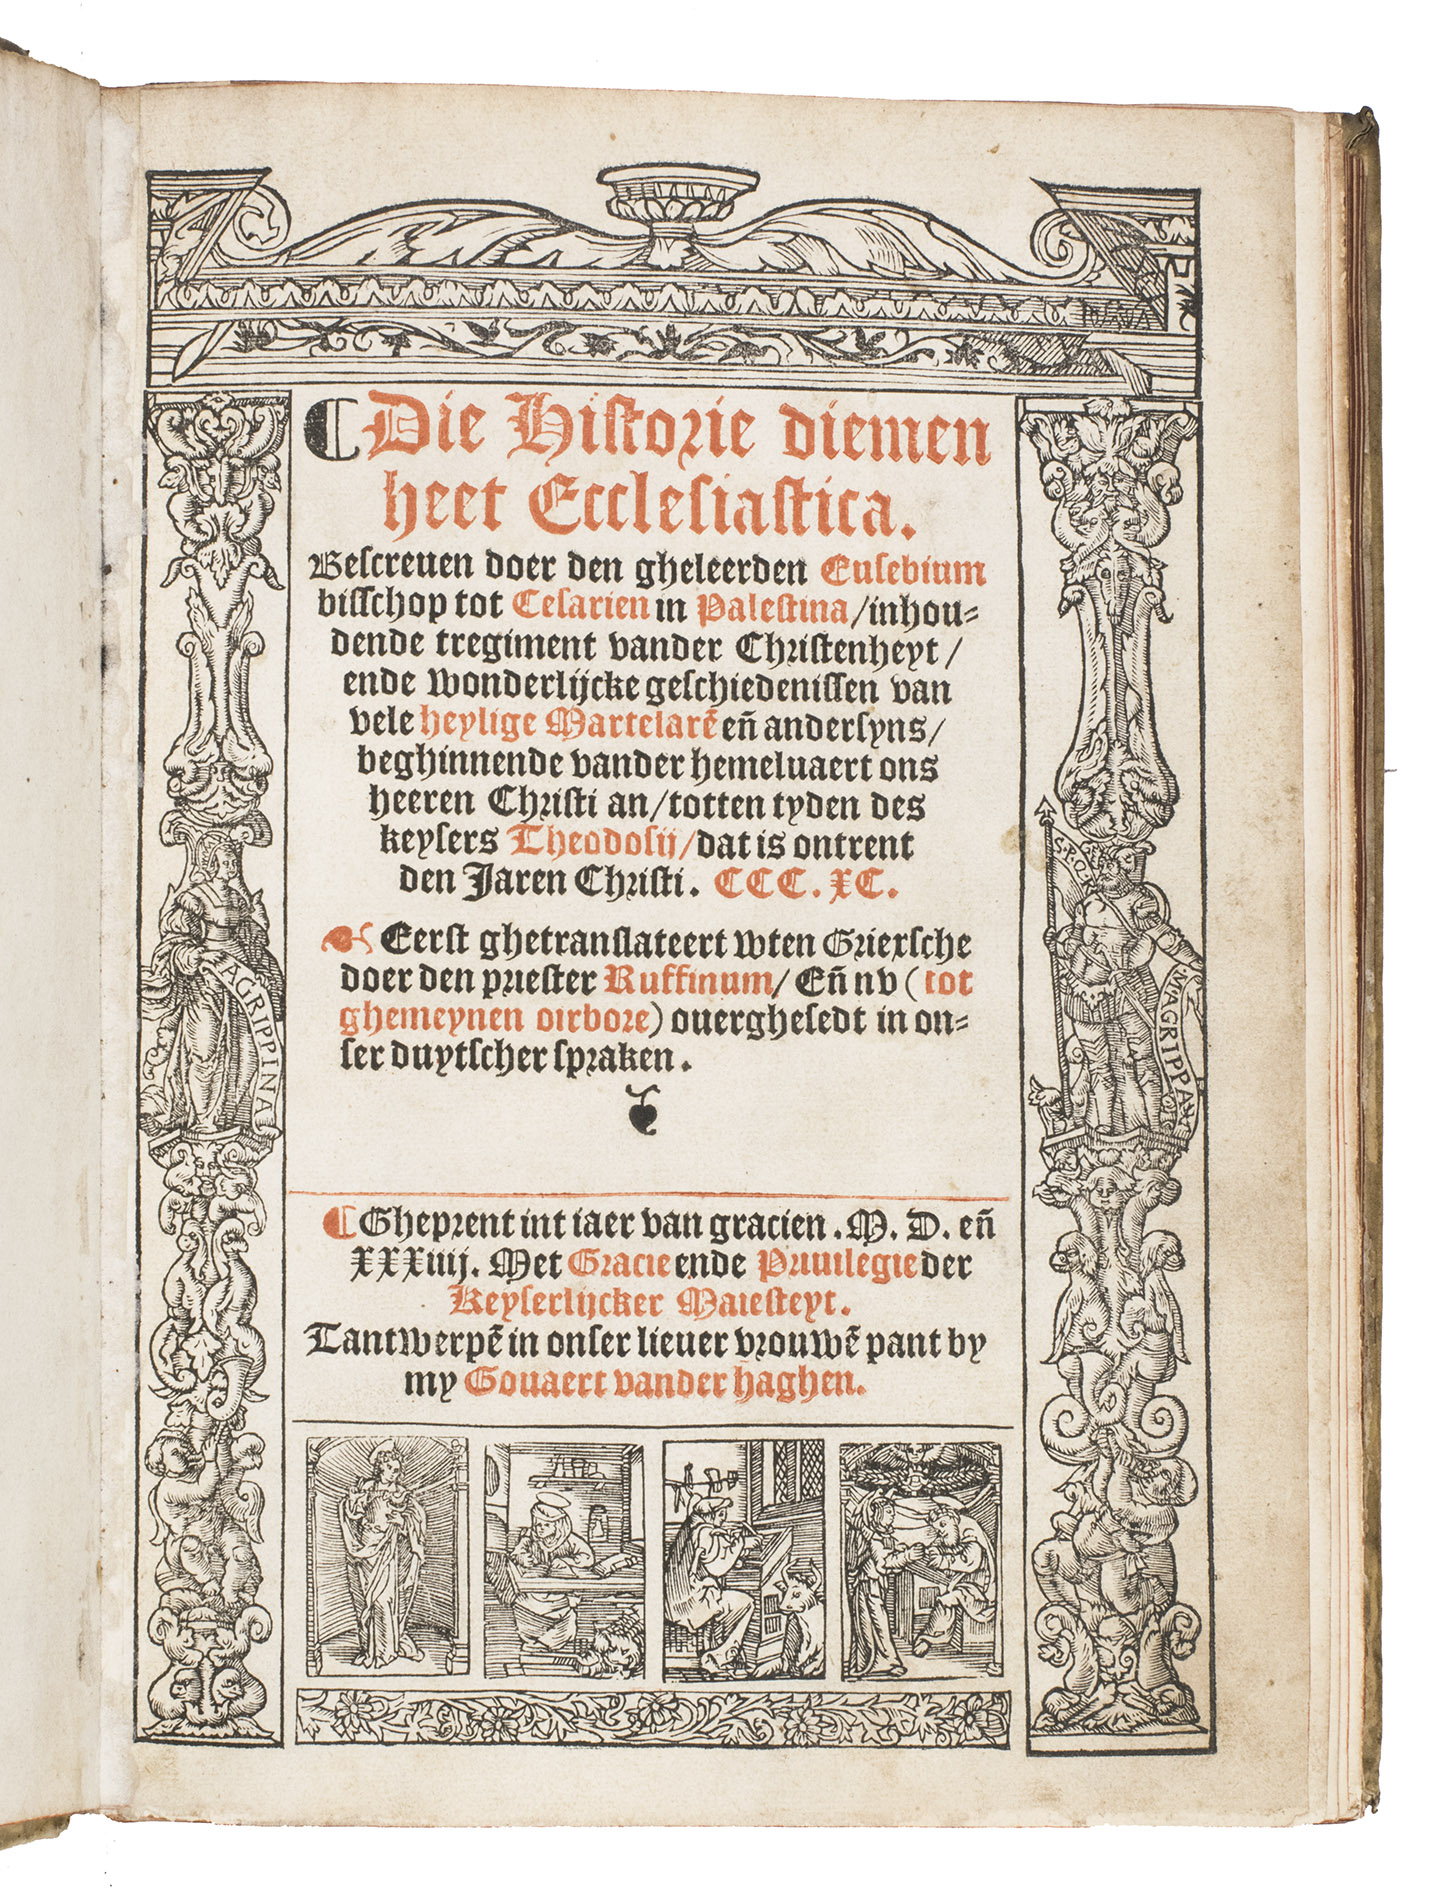 Die Historie diemen
heet Ecclesiastica.
Bescreuen doer den gheleerden Eusebium
bisschop tot Cesarien in Palestina/inhou-
dende tregiment vander Christenheyt/
ende wonderlijcke geschiedenissen van
vele heylige Martelarē eñ andersyns/
beghinnende vander hemeluaert ons
heeren Christi an/totten tyden des
keysers Theodosij/dat is ontrent
den Jaren Christi. CCC.XC.
Eerst ghetranslateert wten Griersche
doer den priester Ruffinum/ Eñ nv (tot
ghemeynen oirbore) ouerghesedt in on-
ser duytscher spraken.
Gheprent int iaer van gracien .M. D. eñ
XXXiiij. Met Gracie ende Priuilegie der
Keyserlijcker Maiesteyt.
Tantwerpē in onser lieuer vrouwē pant by
my Gouaert vander haghen.
AGRIPPINA
S.P.Q.R
M AGRIPPA